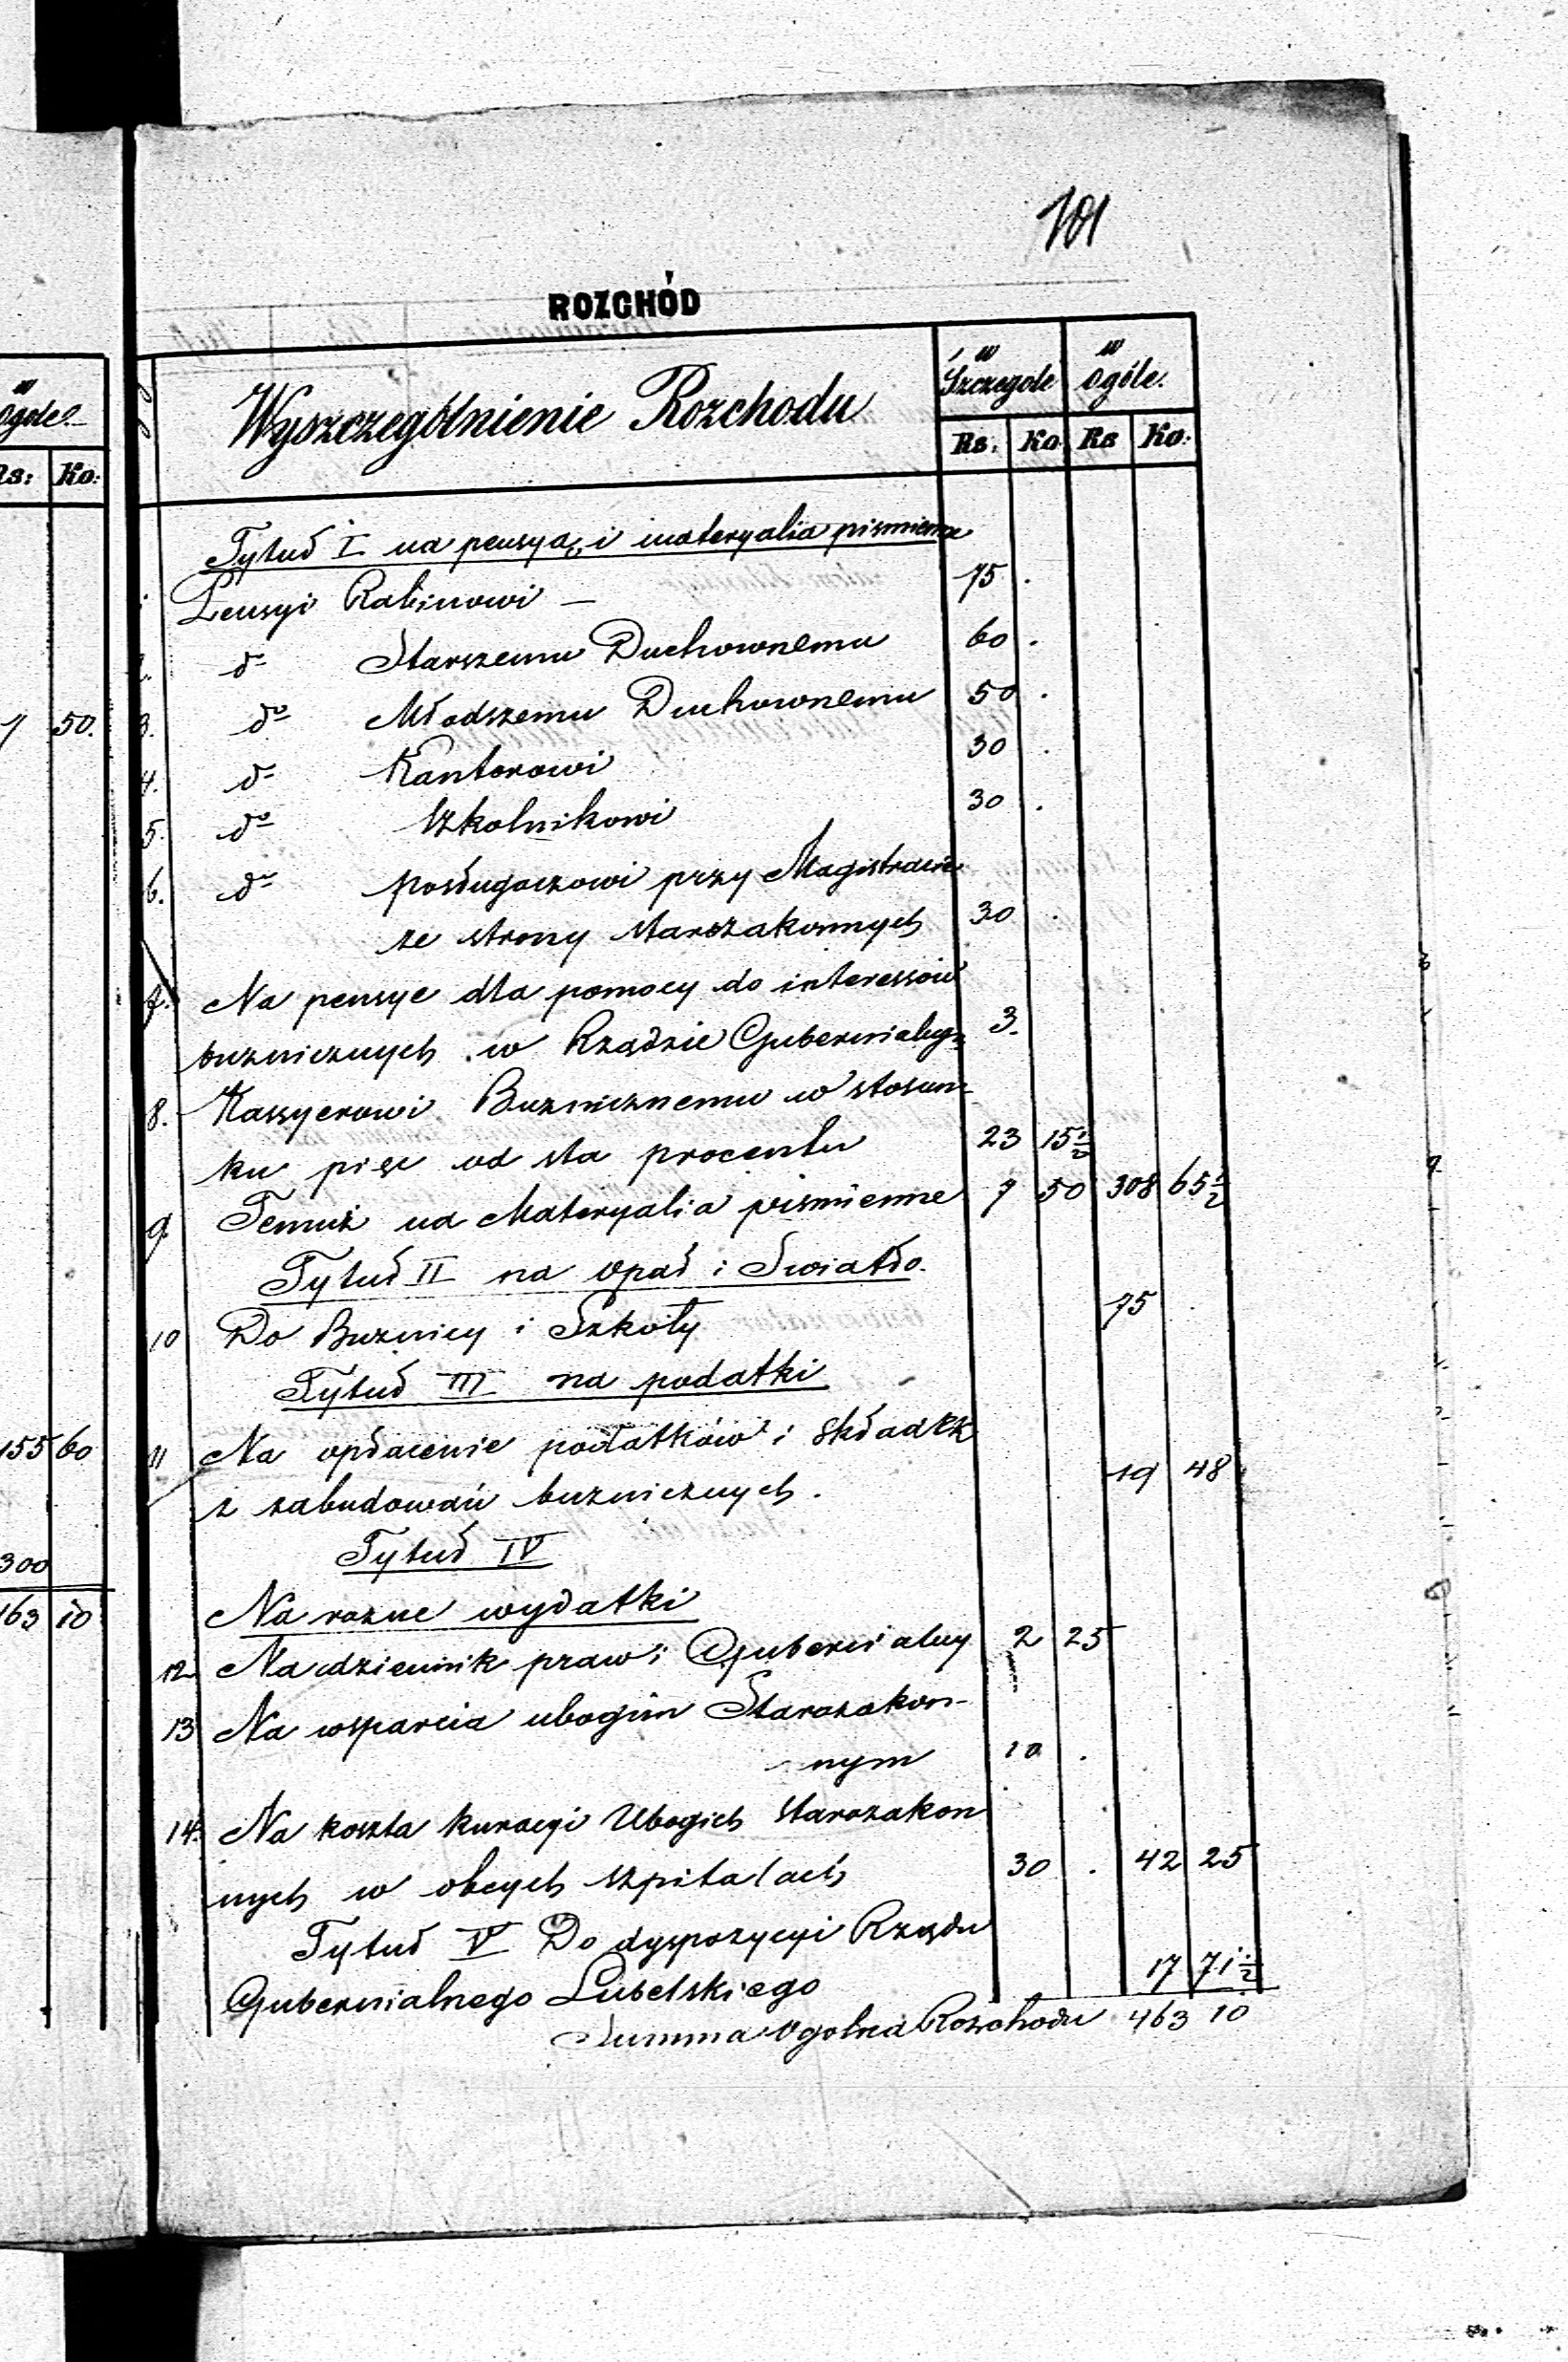 101
ROZCHÓD
Wyszczególnienie Rozchodu
w Szczegole
w ogóle.
Rs. Ko Rs Ko:
Tytuł I na pensyą i materyalia piśmienne
Pensyi Rabinowi — 75 .
2. do Starszemu Duchownemu 60 .
3. do Młodszemu Duchownemu 50 .
4. do Kantorowi 30 .
5. do Szkolnikowi 30 .
6. do posługaczowi przy Magistracie
ze strony starozakonnych 30 .
7. Na pensye dla pomocy do interessów
buznicznych w Rządzie Gubernialny 3.
8. Kassyerowi Buznicznemu w stosun-
ku pięć od sta procentu 23 15½
9 Temuż na Materyalia piśmienne 7 50 308 65½
Tytuł II na opał i Swiatło.
10 Do Buznicy i Szkoły 75 .
Tytuł III na podatki
11 Na opłacenie podatków i składek
z zabudowań buzniczych. 19 48
Tytuł IV
Na rozne wydatki
12. Na dziennik praw i Gubernialny 2 25
13 Na wsparcia ubogim Starozakon-
nym 10 .
14. Na koszta kuracyi Ubogich starozakon
nych w obcych szpitalach 30 . 42 25
Tytuł V Do dyspozycyi Rządu
Gubernialnego Lubelskiego 17 71½
Summa Ogolna Rozchodu 463 10
w ogole
Rs: Ko:
7 50.
155 60
300
463 10